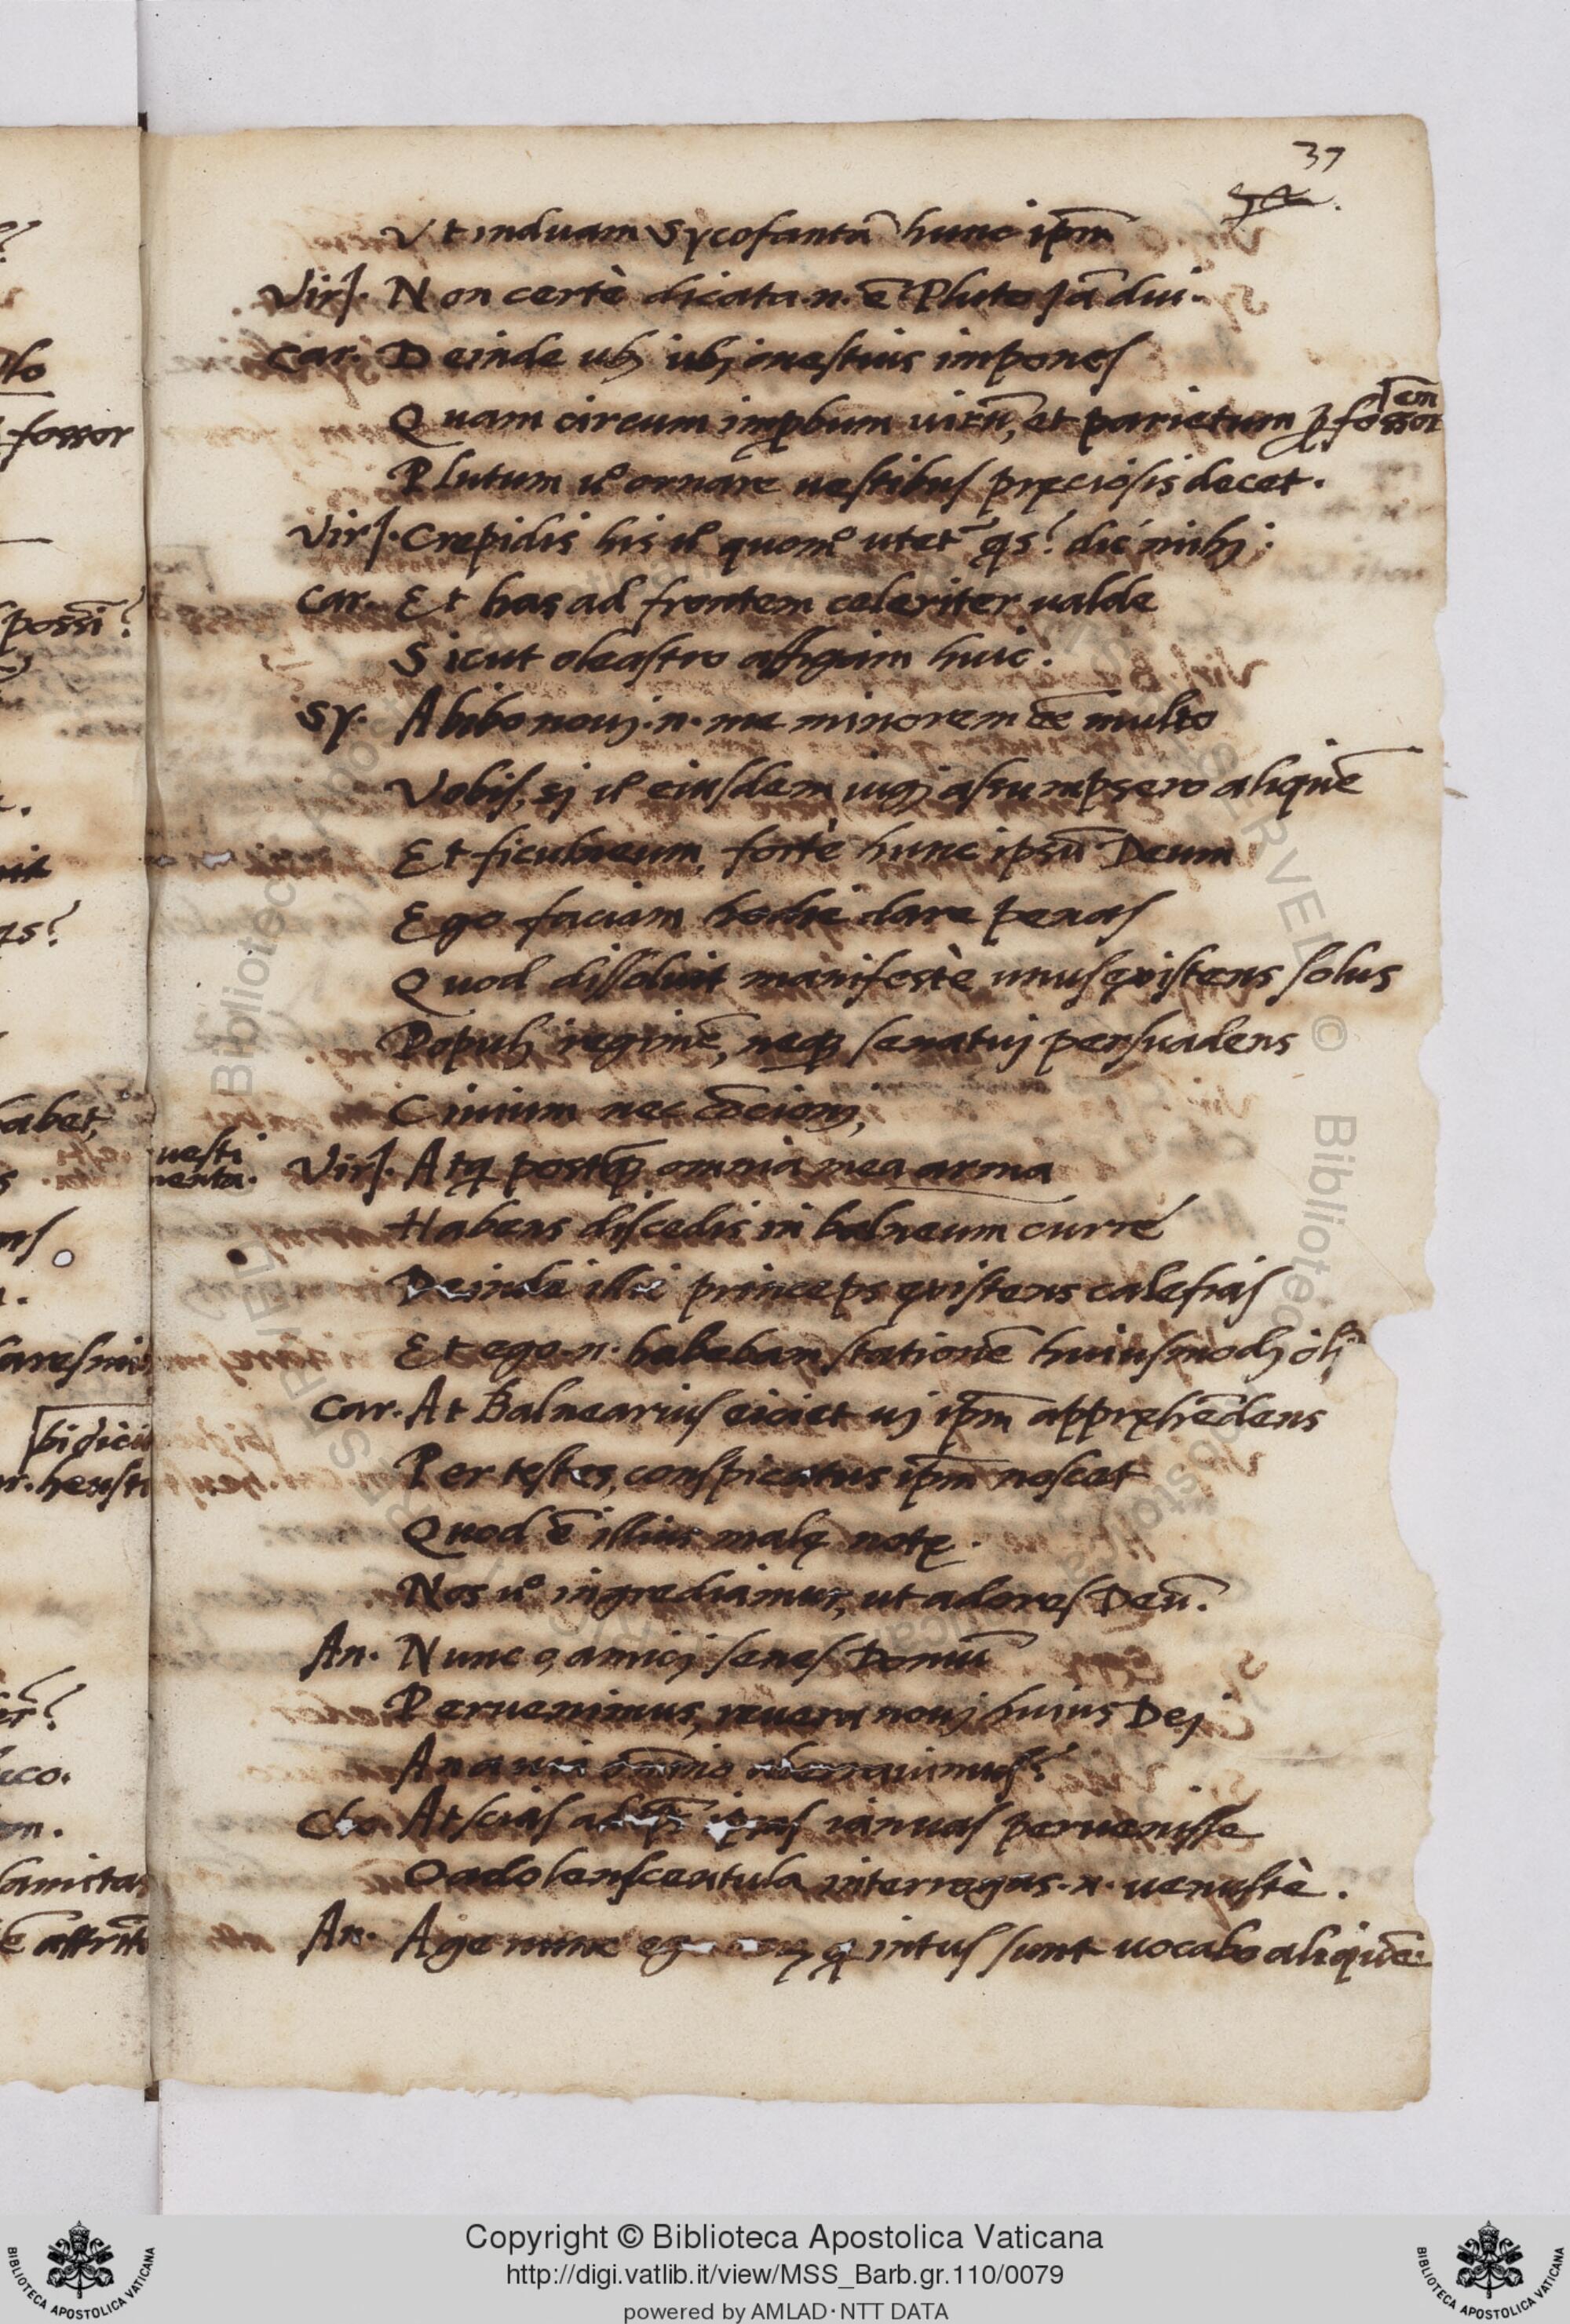 37
Vt induam sycofantā hunc ip̄m
Vir]. Non certè dicata .n. ē Pluto Jā diu.
Car. Deinde ubj ubj mestius impones
Quam circum imꝓbum uirū, et parietum ꝑfossor
em
Plutum u͛o ornare uestibus pręciosis decet.
Vir]. Crepidis his u͛o quomo utet͛ qs? dic mihj:
Car. Et has ad frontem celeriter ualde
Sicut oleastro affigam huic.
Sy. Abibo nouj .n. me minorem ēe multo
Vobis, sj u͛o eiusdem iugj assumpsero aliquē
Et ficulneum, fortè hunc ipsū Deum
Ego faciam hodie dare penas
Quod dissoluit manifestè unus existens solus
Populj reginē, neqꝫ senatuj persuadens
Ciuium nec cōcionj,
uesti
menta.
Vir]. Atq postq̄ omnia mea arma
Habens discedis in balneum curre
Deinde illic princeps existens calefias
Et ego .n. habebam stationē huiusmodj oli
Car. At Balnearius eiciet uj ip̄m appręhēdens
Per testes, conspicatus ip̄m noscet
Quod ē illius malę notę.
Nos u͛o ingrediamur, ut adores Deū.
An. Nunc o, amicj senes Domū
Peruenimus, reuera nouj huius Dej
An a uia omnio aberrauimus?
Cho. At scias ad ipsas ianuas peruenisse
O adolenscentula interrogas .n. uenustè.
An. Age nunc q intus sunt uocabo aliquē.
fossor
possi?
qs?
abet,
bidicu
r. heusti
eco.
Copyright © Biblioteca Apostolica Vaticana
http://digi.vatlib.it/view/MSS_Barb.gr.110/0079
powered by AMLAD·NTT DATA
BIBLIOTECA APOSTOLICA VATICANA
BIBLIOTECA APOSTOLICA VATICANA